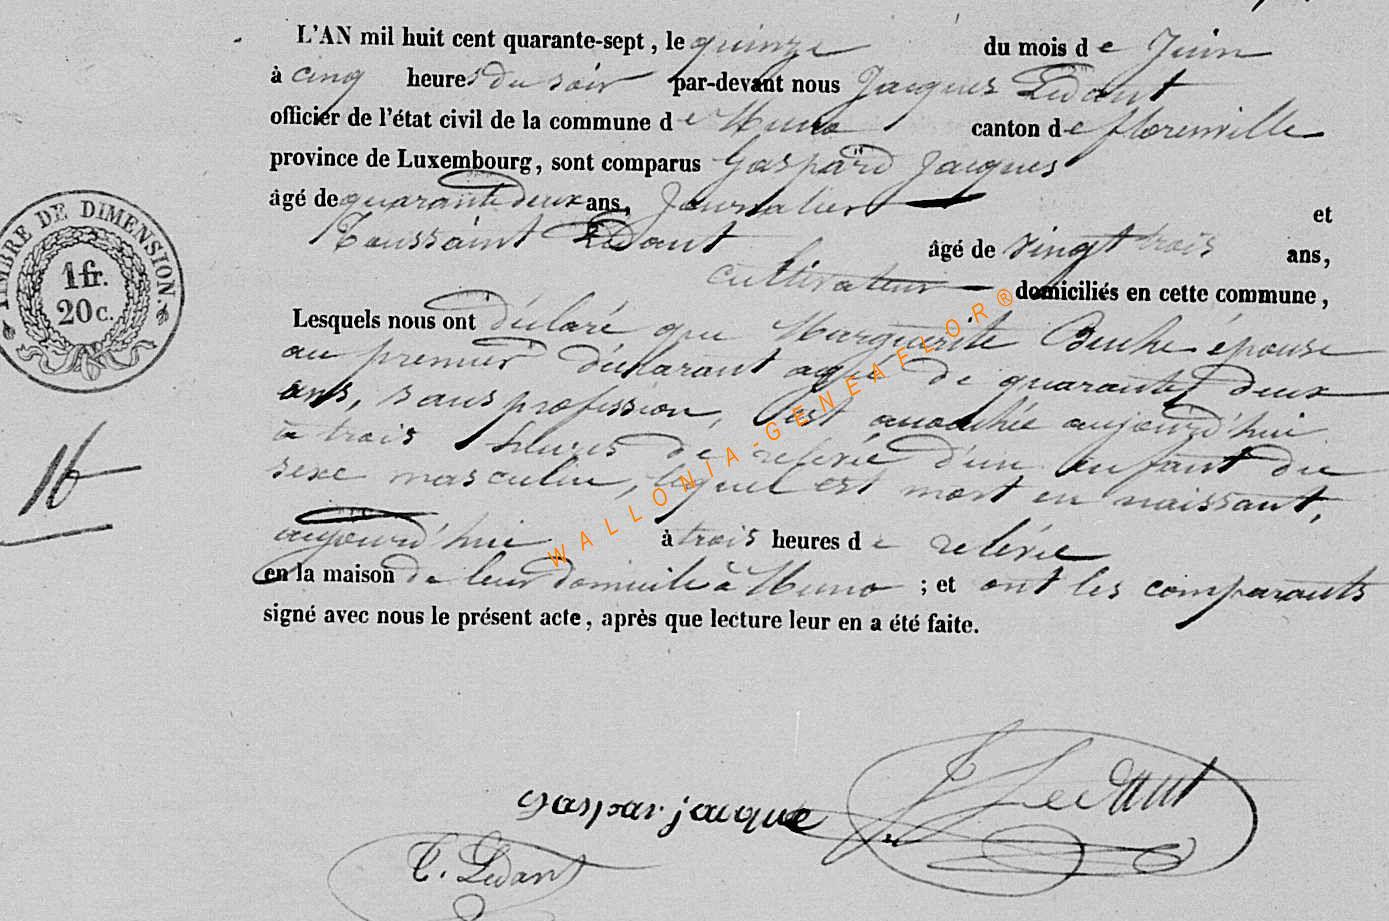 L'AN mil huit cent quarante-sept, le quinze du mois de Juin
à cinq heures du soir par-devant nous Jacques Ledant
officier de l'état civil de la commune de Muno canton de florenville
province de Luxembourg, sont comparus Gaspard Jacques
âgé de quarante deux ans, Journalier et
Toussaint Ledant âgé de vingt trois ans,
cultivateur domiciliés en cette commune,
Lesquels nous ont déclaré que Marguerite épouse
au premier déclarant agée de quarante deux
ans, sans profession, est accouchée aujourd'hui
à trois heures de relevée d'un enfant du
sexe masculin, lequel est mort en naissant,
aujourd'hui à trois heures de relevée
en la maison de leur domicile à Muno ; et ont les comparants
signé avec nous le présent acte, après que lecture leur en a été faite.
TIMBRE DE DIMENSION.
1fr.
20c.
16
WALLONIA-GENEAFLOR®
J Ledant
gaspar jacque
T. Ledant